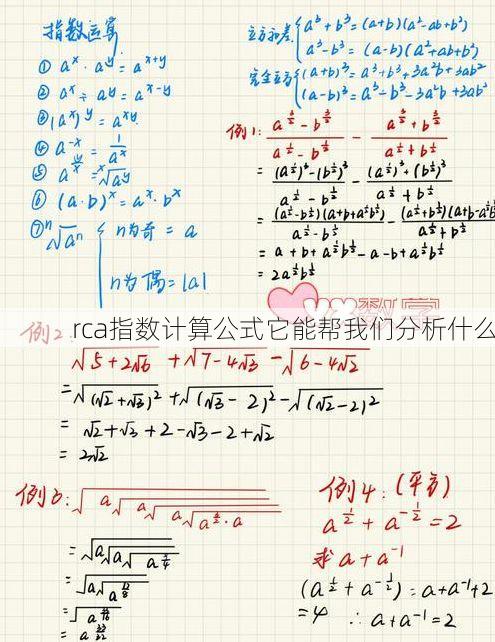 指数运算
① a^x · a^y = a^{x+y}
② a^x ÷ a^y = a^{x-y}
③ (a^x)^y = a^{xy}
④ a^{-x} = \frac{1}{a^x}
⑤ a^{\frac{y}{x}} = \sqrt[x]{a^y}
⑥ (a·b)^x = a^x · b^x
⑦ \sqrt[n]{a^n} { n为奇 = a
n为偶 = |a|
立方和差 { a³+b³ = (a+b)(a²-ab+b²)
a³-b³ = (a-b)(a²+ab+b²)
完全立方 { (a+b)³ = a³+b³+3a²b+3ab²
(a-b)³ = a³-b³-3a²b+3ab²
例1: \frac{a^{\frac{3}{2}}-b^{\frac{3}{2}}}{a^{\frac{1}{2}}-b^{\frac{1}{2}}} - \frac{a^{\frac{3}{2}}+b^{\frac{3}{2}}}{a^{\frac{1}{2}}+b^{\frac{1}{2}}}
= \frac{(a^{\frac{1}{2}})³-(b^{\frac{1}{2}})³}{a^{\frac{1}{2}}-b^{\frac{1}{2}}} - \frac{(a^{\frac{1}{2}})³+(b^{\frac{1}{2}})³}{a^{\frac{1}{2}}+b^{\frac{1}{2}}}
= \frac{(a^{\frac{1}{2}}-b^{\frac{1}{2}})(a+b+a^{\frac{1}{2}}b^{\frac{1}{2}})}{a^{\frac{1}{2}}-b^{\frac{1}{2}}} - \frac{(a^{\frac{1}{2}}+b^{\frac{1}{2}})(a+b-a^{\frac{1}{2}}b^{\frac{1}{2}}}{a^{\frac{1}{2}}+b^{\frac{1}{2}}}
= a+b+a^{\frac{1}{2}}b^{\frac{1}{2}}-a-b+a^{\frac{1}{2}}b^{\frac{1}{2}}
= 2a^{\frac{1}{2}}b^{\frac{1}{2}}
rca指数计算公式它能帮我们分析什么
例2
\sqrt{5+2\sqrt{6}} + \sqrt{7-4\sqrt{3}} - \sqrt{6-4\sqrt{2}}
= \sqrt{(\sqrt{2}+\sqrt{3})²} + \sqrt{(\sqrt{3}-2)²} - \sqrt{(\sqrt{2}-2)²}
= \sqrt{2}+\sqrt{3}+2-\sqrt{3}-2+\sqrt{2}
= 2\sqrt{2}
例3: \sqrt{a\sqrt{a\sqrt{a\sqrt{a^{\frac{1}{2}}·a}}}}
= \sqrt{a\sqrt{a\sqrt{a^{\frac{7}{4}}}}}
= \sqrt{a\sqrt{a^{\frac{15}{8}}}}
= \sqrt{a^{\frac{31}{16}}}
= a^{\frac{31}{32}}
例4: (平方)
a^{\frac{1}{2}} + a^{-\frac{1}{2}} = 2
求 a + a^{-1}
(a^{\frac{1}{2}} + a^{-\frac{1}{2}}) = a+a^{-1}+2
= 4 ∴ a+a^{-1} = 2